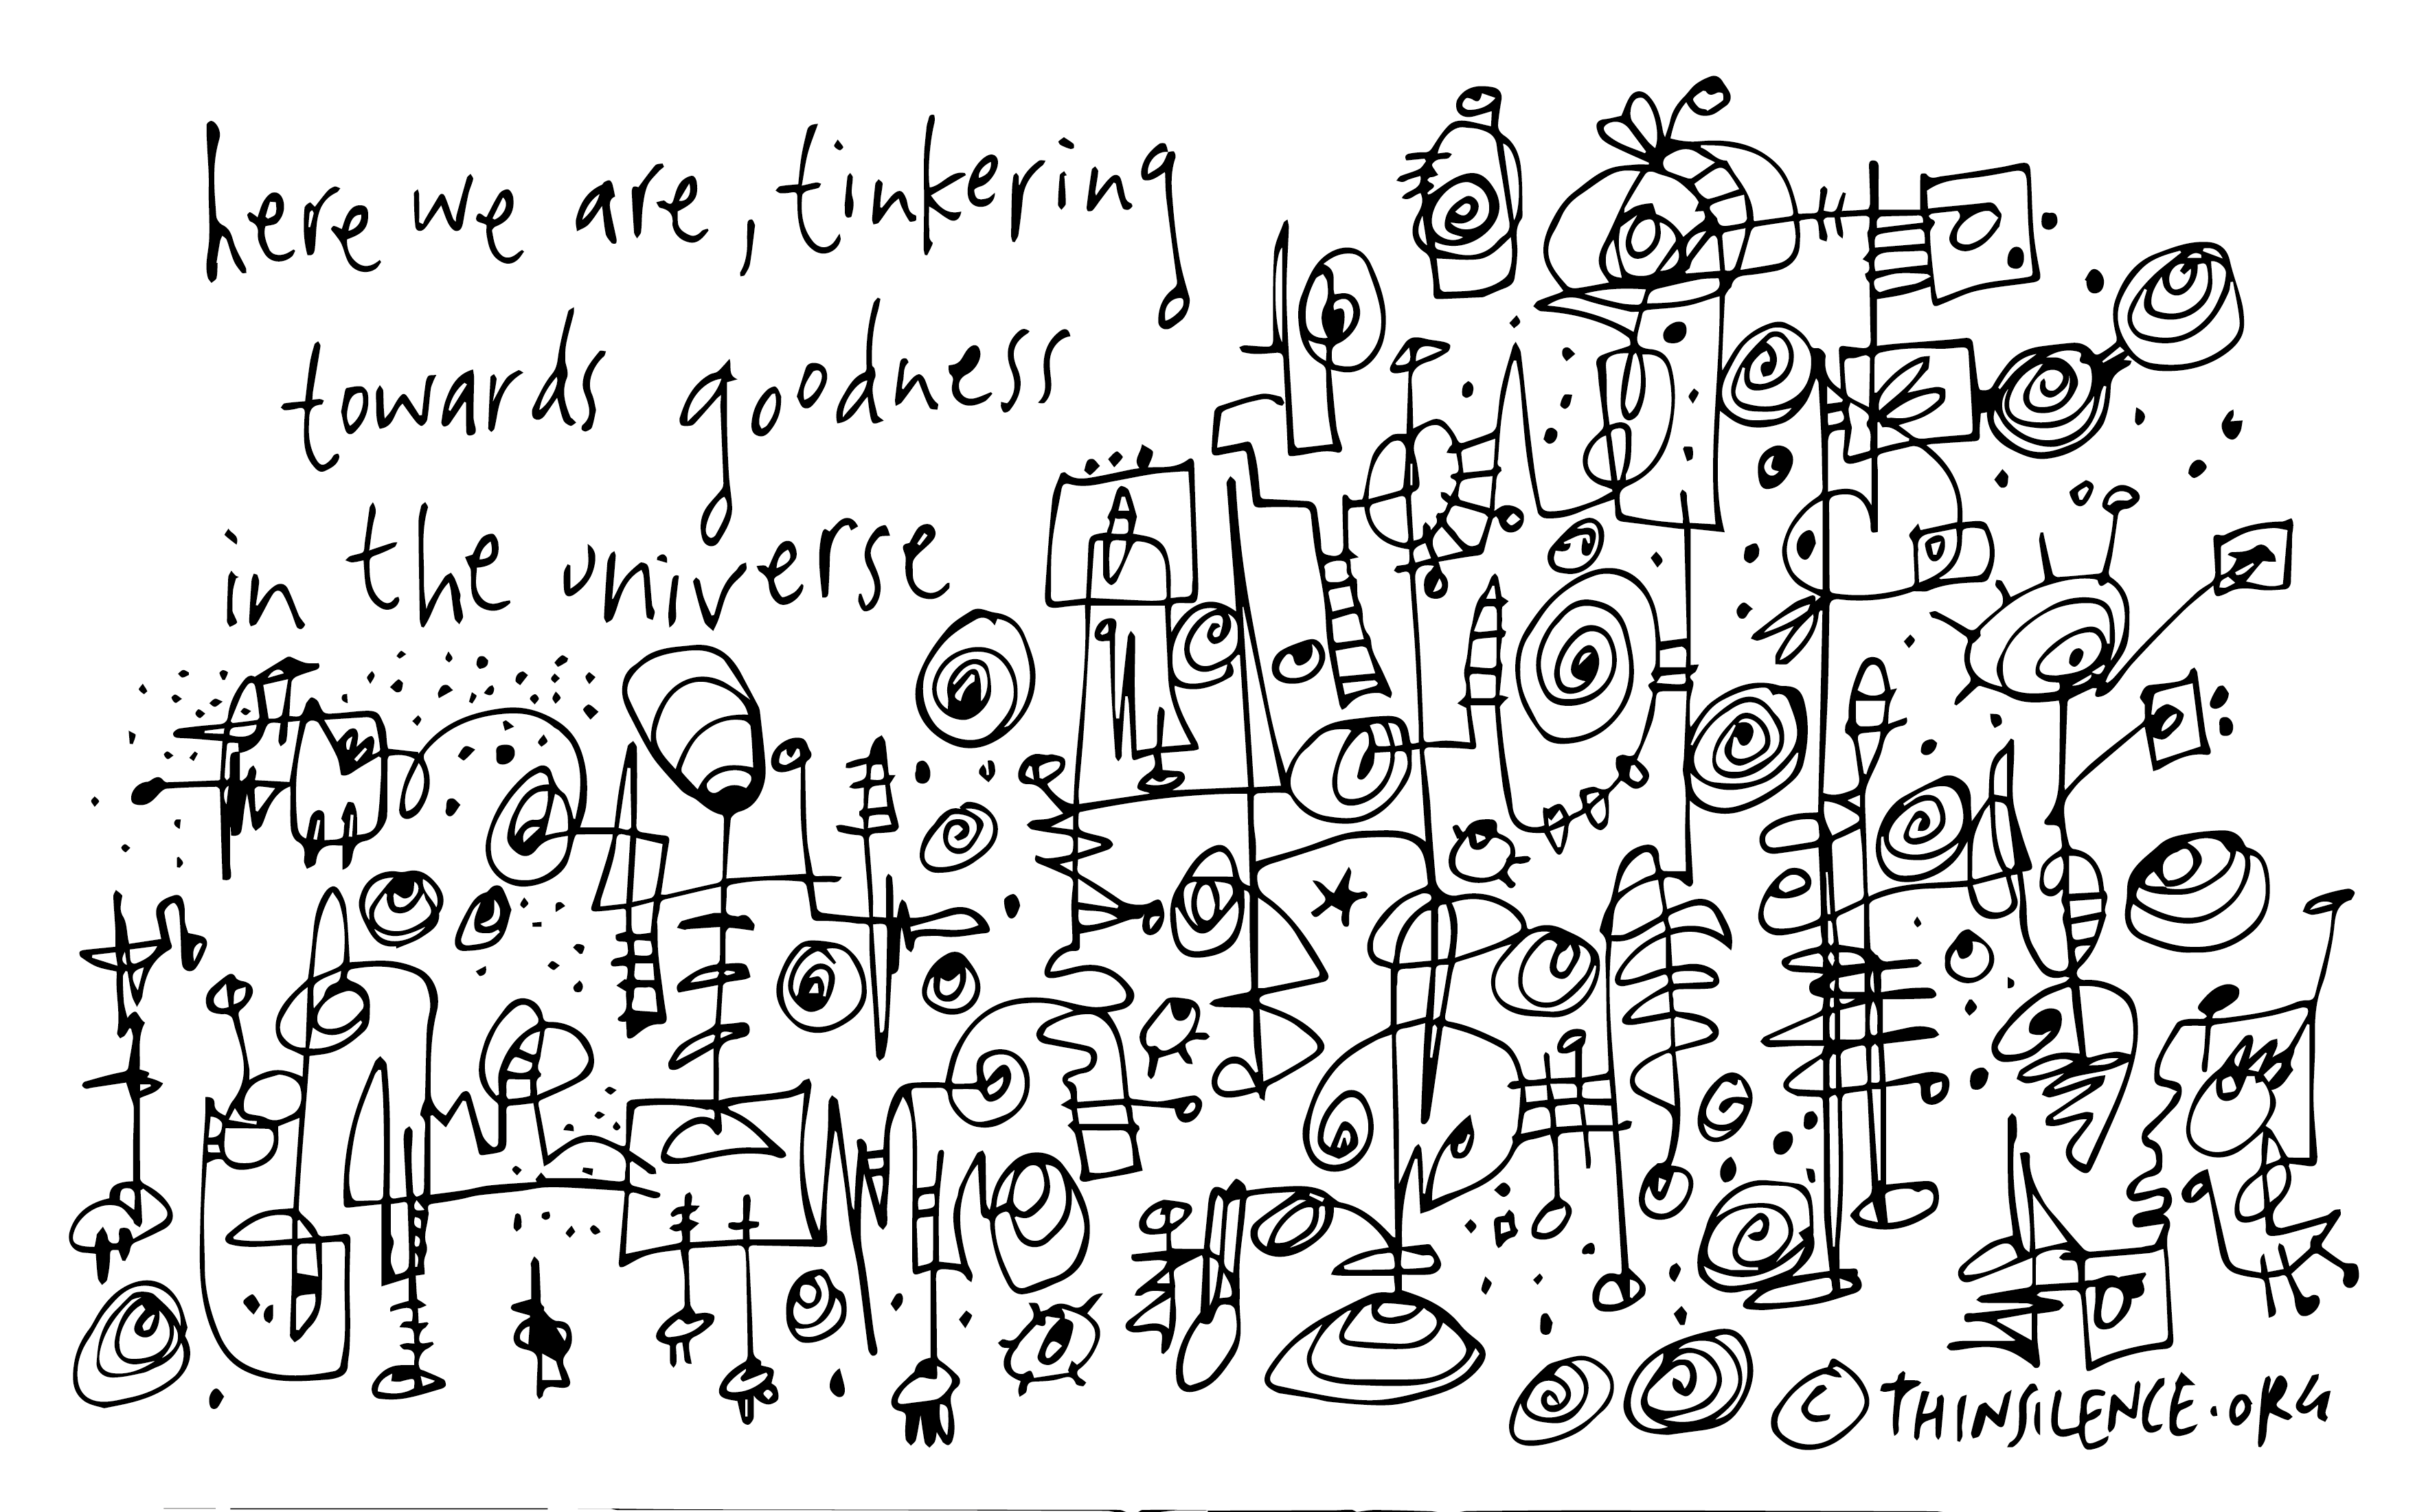 here we are, tinkering
towards goodness
in the universe
© THINSILENCE.ORG